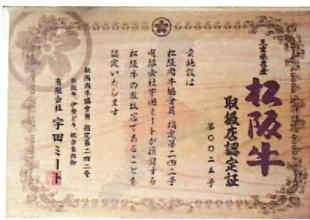 三重県産
松阪牛
取扱店認定証
第〇〇二五号
貴施設は
松阪肉牛協會員 指定第二四二号
有限会社宇田ミートが販売する
松阪牛の取扱店であることを
認定いたします
松阪肉牛協會員 指定第二四二号
有限会社 宇田ミート